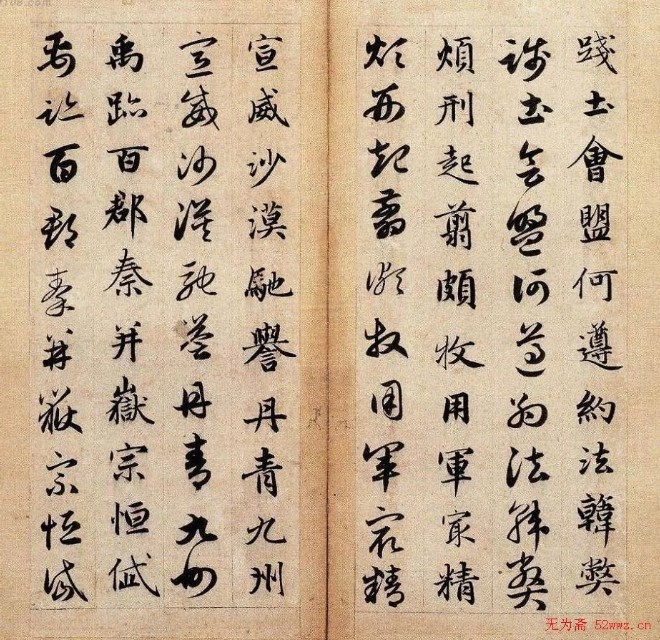 踐土會盟何遵約法韓弊
踐土會盟何遵約法韓弊
煩刑起翦頗牧用軍冣精
煩刑起翦頗牧用軍冣精
宣威沙漠馳譽丹青九州
宣威沙漠馳譽丹青九州
禹跡百郡秦并嶽宗恒岱
禹跡百郡秦并嶽宗恒岱
无为斋 52wwz.cn